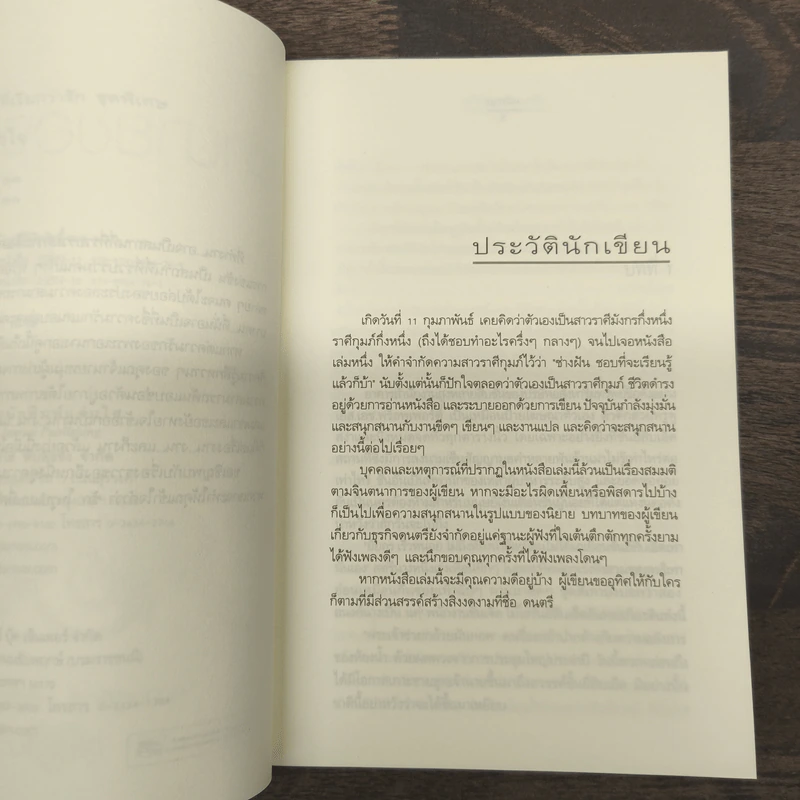 ประวัตินักเขียน
เกิดวันที่ 11 กุมภาพันธ์ เคยคิดว่าตัวเองเป็นสาวราศีมังกรกึ่งหนึ่ง
ราศีกุมภ์กึ่งหนึ่ง (ถึงได้ชอบทำอะไรครึ่งๆ กลางๆ) จนไปเจอหนังสือ
เล่มหนึ่ง ให้คำจำกัดความสาวราศีกุมภ์ไว้ว่า "ช่างฝัน ชอบที่จะเรียนรู้
แล้วก็บ้า" นับตั้งแต่นั้นก็ปักใจตลอดว่าตัวเองเป็นสาวราศีกุมภ์ ชีวิตดำรง
อยู่ด้วยการอ่านหนังสือ และระบายออกด้วยการเขียน ปัจจุบันกำลังมุ่งมั่น
และสนุกสนานกับงานขีดๆ เขียนๆ และงานแปล และคิดว่าจะสนุกสนาน
อย่างนี้ต่อไปเรื่อยๆ
บุคคลและเหตุการณ์ที่ปรากฏในหนังสือเล่มนี้ล้วนเป็นเรื่องสมมติ
ตามจินตนาการของผู้เขียน หากจะมีอะไรผิดเพี้ยนหรือพิสดารไปบ้าง
ก็เป็นไปเพื่อความสนุกสนานในรูปแบบของนิยาย บทบาทของผู้เขียน
เกี่ยวกับธุรกิจดนตรียังจำกัดอยู่แค่ฐานะผู้ฟังที่ใจเต้นตึกตักทุกครั้งยาม
ได้ฟังเพลงดีๆ และนึกขอบคุณทุกครั้งที่ได้ฟังเพลงโดนๆ
หากหนังสือเล่มนี้จะมีคุณความดีอยู่บ้าง ผู้เขียนขออุทิศให้กับใคร
ก็ตามที่มีส่วนสรรค์สร้างสิ่งงดงามที่ชื่อ ดนตรี